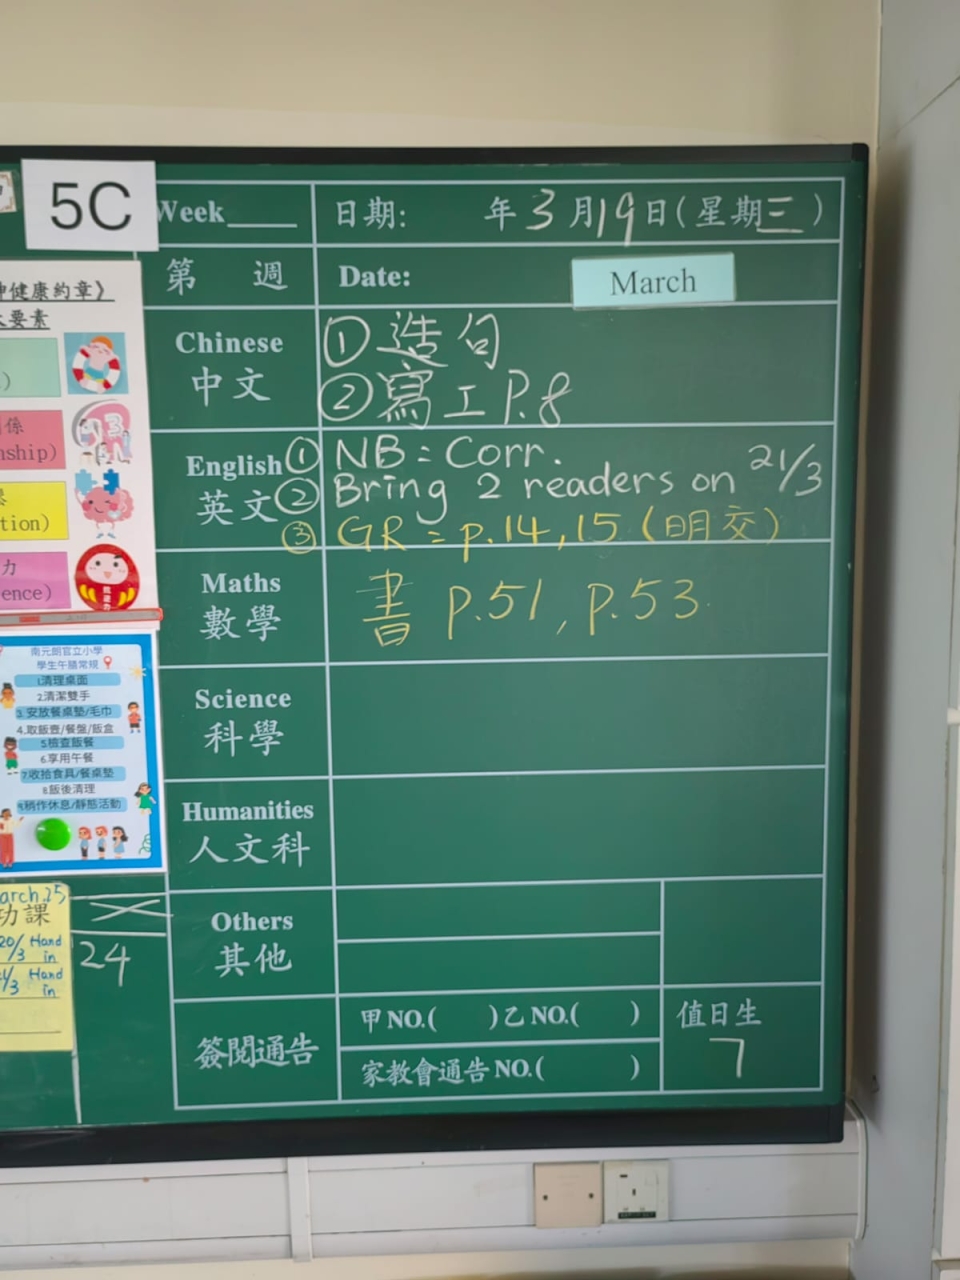 5C
Week
日期: 年3月19日(星期三)
第 週
Date: March
Chinese
中文
①造句
②寫工P.8
English
英文
①NB=Corr.
②Bring 2 readers on 21/3
③GR=p.14,15(明交)
Maths
數學
書 p.51, p.53
Science
科學
Humanities
人文科
Others
其他
簽閱通告
甲NO.( )乙NO.( )
家教會通告NO.( )
值日生
7
健康約章》
要素
)
係
nship)
tion)
力
ence)
南元朗官立小學
學生午膳常規
1.清理桌面
2.清潔雙手
3.安放餐桌墊/毛巾
4.取飯壺/餐盤/飯盒
5.檢查飯餐
6.享用午餐
7.收拾食具/餐桌墊
8.飯後清理
9.稍作休息/靜態活動
arch 25
功課
20/3 Hand in
/3 Hand in
24